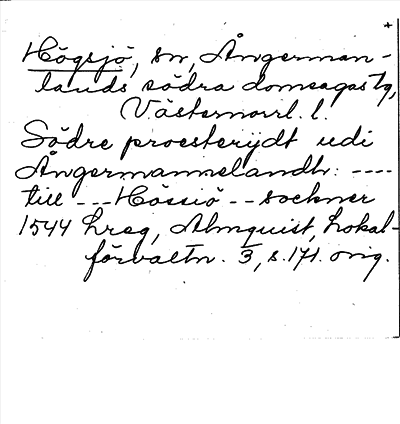 +
Högsjö, sn, Ångerman-
lands södra domsagas tg,
Västernorrl. l.
Södre proesterijdt udi
Ångermannelandh: ----
till --- Hössiö -- sockner
1544 hreg, Almquist, Lokal-
förvaltn. 3, s. 171. orig.